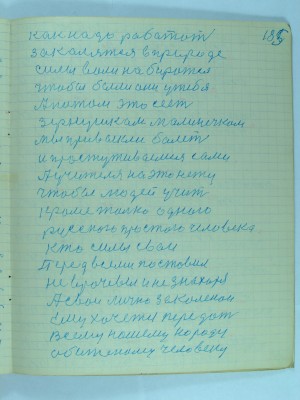 185
как надо работот
закалятся в природе
силы воли набиротся
чтобы были они у тебя
А потом это сеет
зернушкам маличечкам
мы привыкли болет
и простуживаемся сами
А учителя на это нету
чтобы людей учит
кроме толко одного
русского простого человека
кто силы свои
Перед всеми поставил
не врочевы и не знахоря
А свои лично закаленои
Ему хочется передат
всему нашему народу
обиженому человеку